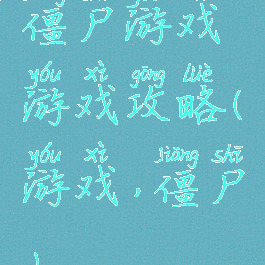 僵尸游戏
yóu xì gōng lüè
游戏攻略(
yóu xì jiāng shī
游戏,僵尸
)